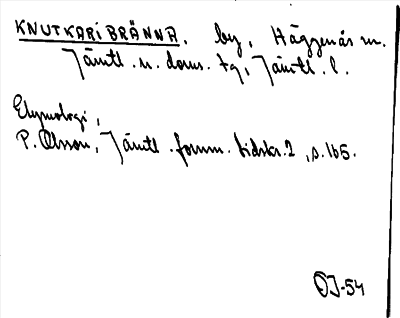 KNUTKARIBRÄNNA. by, Häggenås sn.
Jämtl. n. doms. tg, Jämtl. l.
Etymologi,
P. Olsson, Jämtl. fornm. tidskr. 2, s. 165.
OJ-54